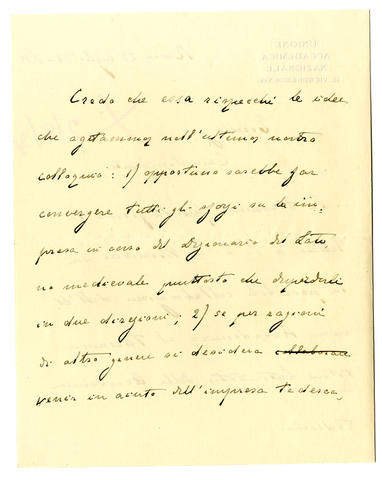 Credo che essa rispecchi le idee
che agitammo nell'ultimo nostro
colloquio: 1) opportuno sarebbe far
convergere tutti gli sforzi su la im-
presa in corso del Dizionario del Lati-
no medievale piuttosto che disperderli
in due direzioni; 2) se per ragioni
di altro genere si desidera collaborare
venir in aiuto dell'impresa tedesca,